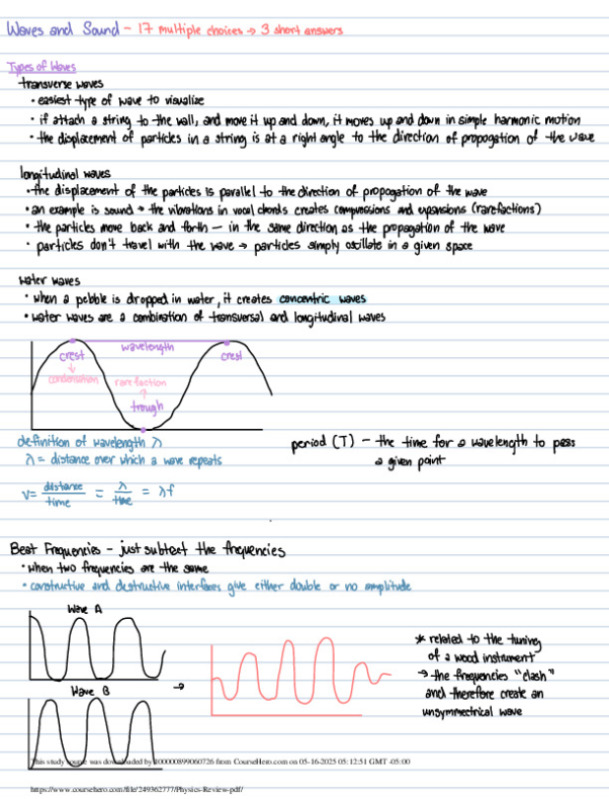 Waves and Sound - 17 multiple choices → 3 short answers
Types of Waves
transverse waves
• easiest type of wave to visualize
• if attach a string to the wall, and move it up and down, it moves up and down in simple harmonic motion
• the displacement of particles in a string is at a right angle to the direction of propogation of the wave
longitudinal waves
• the displacement of the particles is parallel to the direction of propogation of the wave
• an example is sound → the vibrations in vocal chords creates compressions and expansions (rarefactions)
• the particles move back and forth — in the same direction as the propogation of the wave
• particles don't travel with the wave → particles simply oscillate in a given space
water waves
• when a pebble is dropped in water, it creates concentric waves
• water waves are a combination of transversal and longitudinal waves
wavelength
crest
crest
↓
condensation
rarefaction
?
trough
definition of wavelength λ
λ = distance over which a wave repeats
period (T) - the time for a wavelength to pass
a given point
v = distance/time = λ/time = λf
Beat Frequencies - just subtract the frequencies
• when two frequencies are the same
• constructive and destructive interfaces give either double or no amplitude
Wave A
Wave B
→
* related to the tuning
of a wood instrument
→ the frequencies "clash"
and therefore create an
unsymmetrical wave
This study source was downloaded by 100000899060726 from CourseHero.com on 05-16-2025 05:12:51 GMT -05:00
https://www.coursehero.com/file/249362777/Physics-Review-pdf/